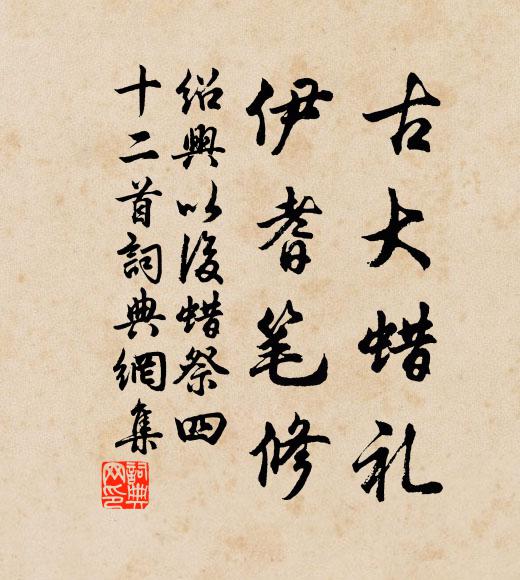 古大蜡礼
伊耆笔修
绍興以後蜡祭四
十二首詞典網集
詞典
网印